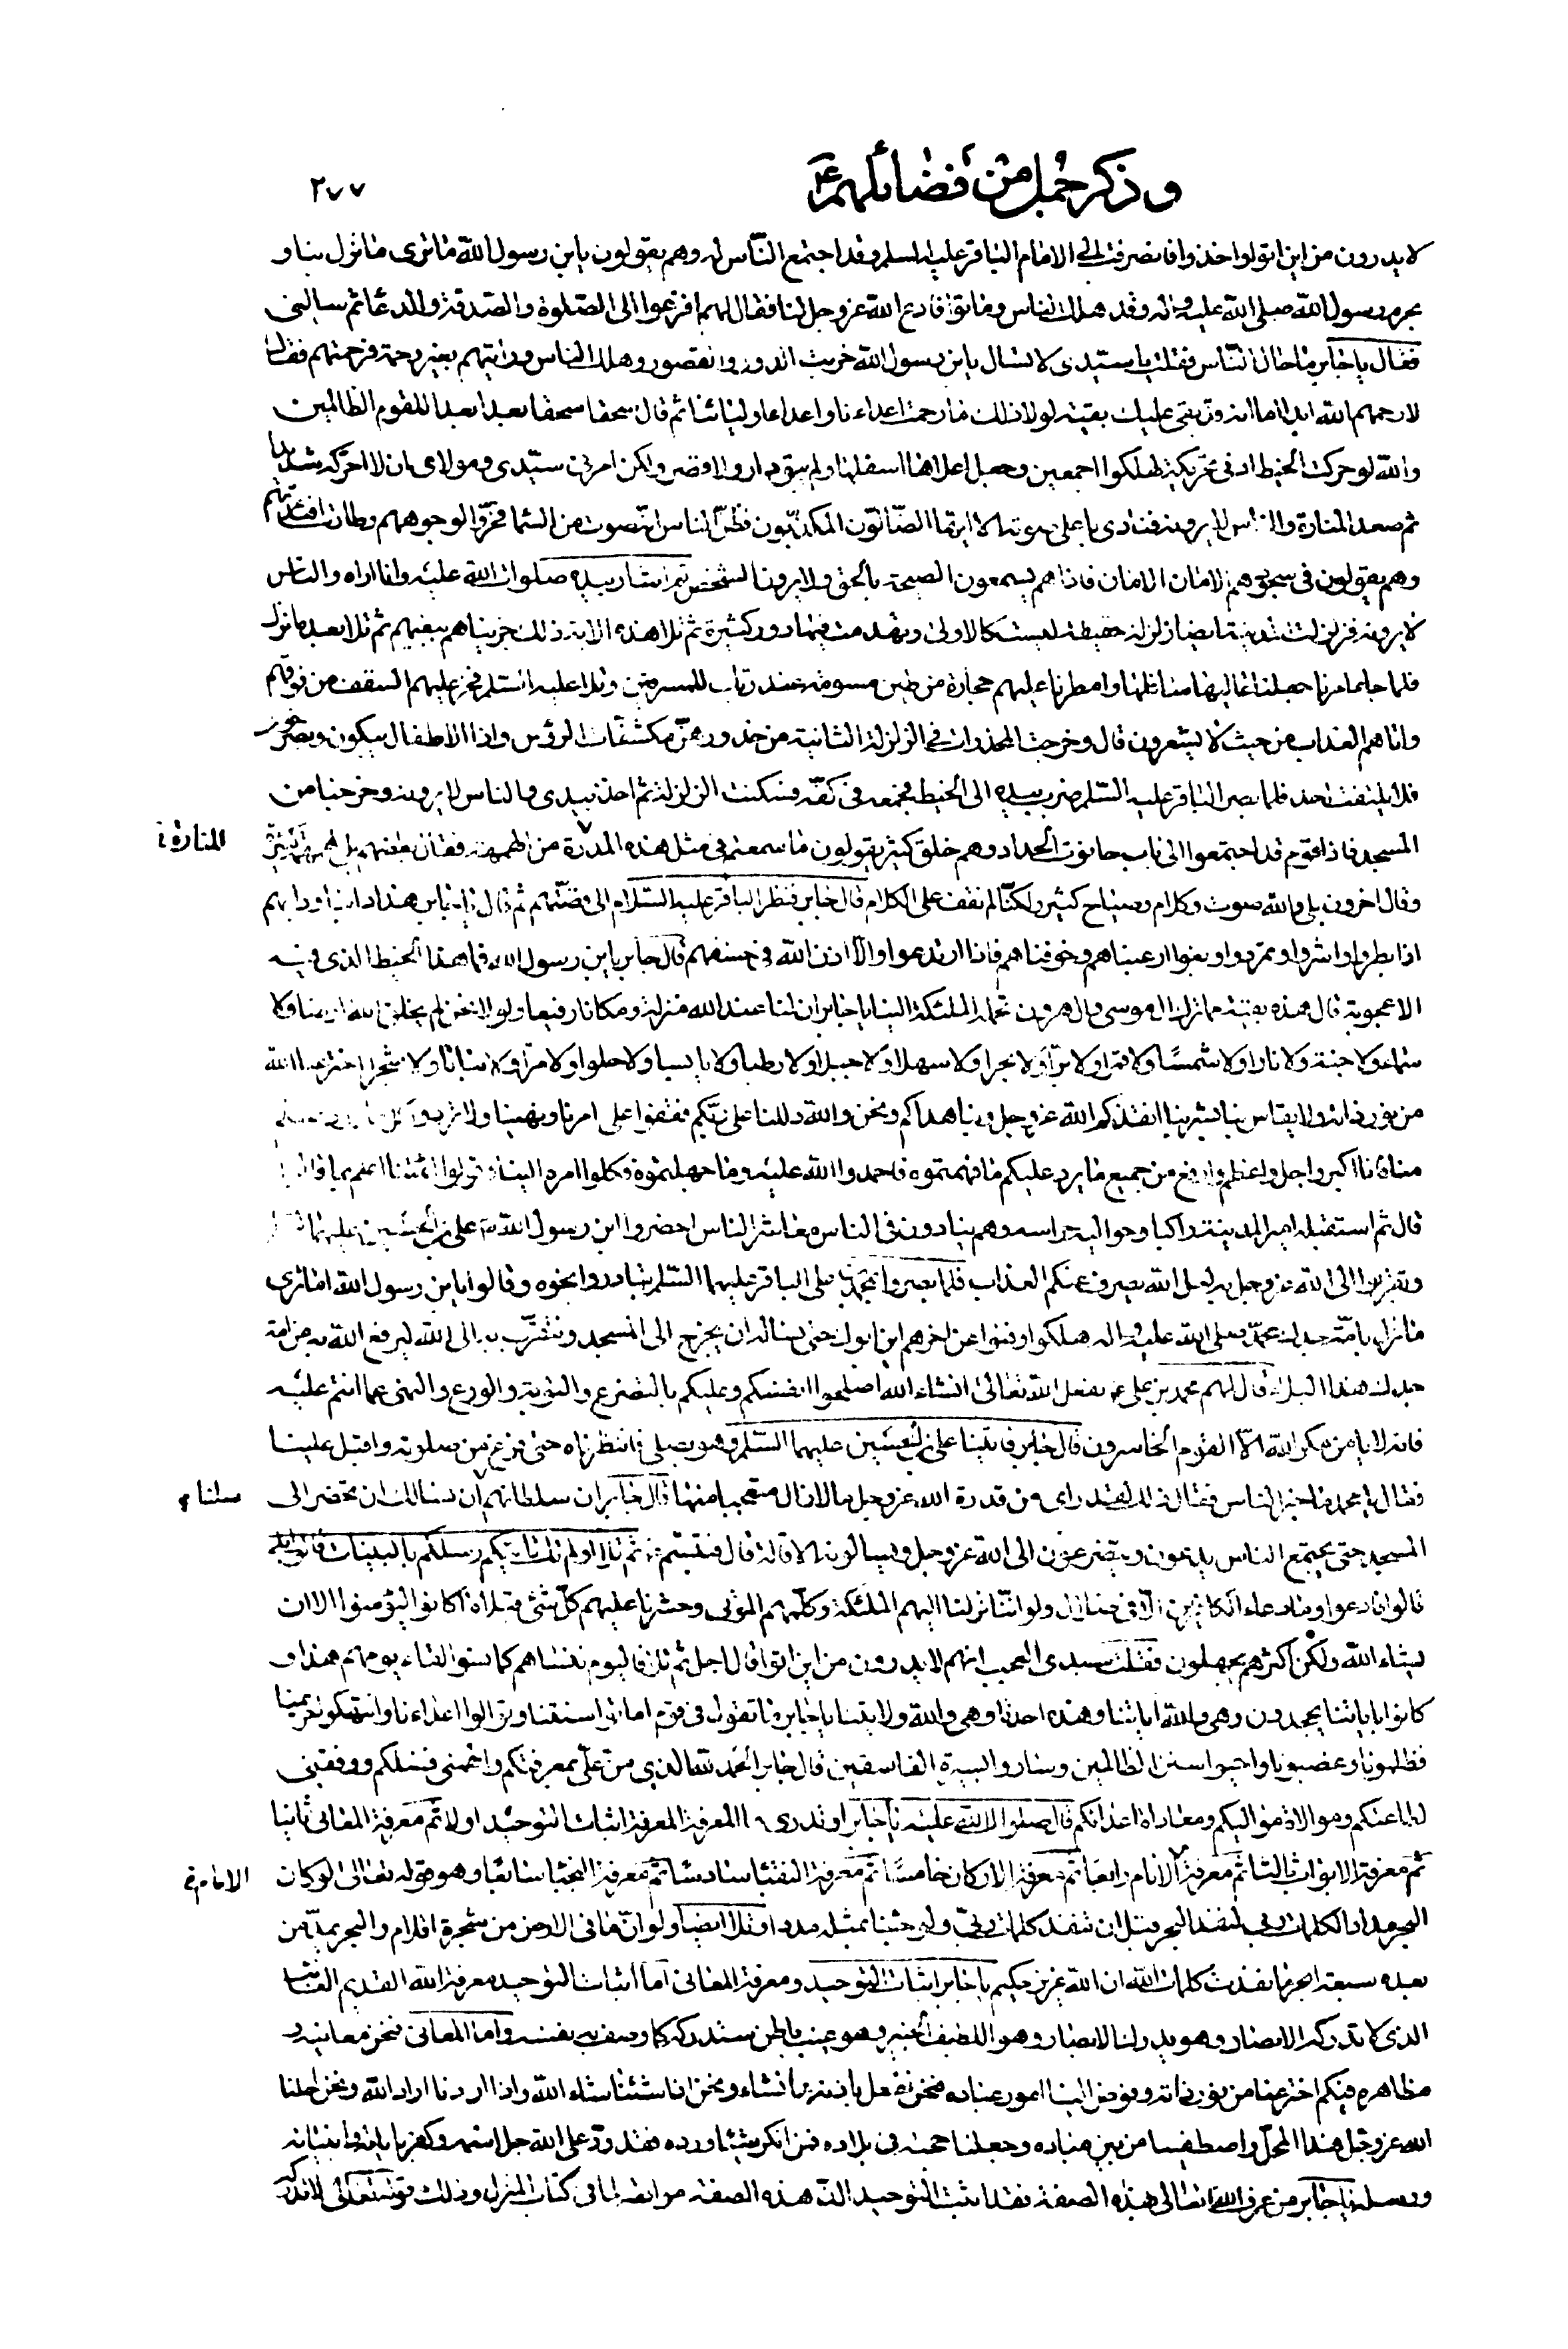 وذكر جمل من فضائلهم ع ٢٧٧
لا يدرون من اين اتوا واخذوا فانصرفت الى الامام الباقر عليه السلم وقد اجتمع الناس له وهم يقولون يا بن رسول الله ما ترى ما نزل بنا و
بحرم رسول الله صلى الله عليه واله وقد هلك الناس وماتوا فادع الله عز وجل لنا فقال لهم افزعوا الى الصلوة والصدقة والدعا ثم سالني
فقال يا جابر ما حال الناس فقلت يا سيدى لا تسال يا بن رسول الله خربت الدور والقصور وهلك الناس ورايتهم بغير رحمة فرحمتهم فقال
لا رحمهم الله ابدا اما انه قد بقى عليك بقية لولا ذلك ما رحمت اعداءنا واعداء اوليائنا ثم قال سحقا سحقا بعدا بعدا للقوم الظالمين
والله لو حركت الخيط ادنى تحريكة لهلكوا اجمعين وجعل اعلاها اسفلها ولم يبق دار ولا قصر ولكن امرنى سيدى ومولاى ان لا احركه شديدا
ثم صعد المنارة والناس لا يرونه فنادى با على صوته الا ايها الضالون المكذبون فظن الناس انه صوت من السما فخروا لوجوههم وطارت افئدتهم
وهم يقولون فى سجودهم الامان الامان فاذا هم يسمعون الصيحة بالحق ولا يرون الشخص ثم اشار بيده صلوات الله عليه وانا اراه والناس
لا يرونه فزلزلت المدينة ايضا زلزلة خفيفة ليست كالاولى وتهدمت فيها دور كثيرة ثم تلا هذه الاية ذلك جزيناهم ببغيهم ثم تلا بعد ما نزل
فلما جاء امرنا جعلنا عاليها سافلها وامطرنا عليهم حجارة من طين مسومة عند ربك للمسرفين وتلا عليه السلم فخر عليهم السقف من فوقهم
واتاهم العذاب من حيث لا يشعرون قال وخرجت المخدرات فى الزلزلة الثانية من خدورهن مكشفات الرؤس واذا الاطفال يبكون ويصرخون
فلا يلتفت احد فلما بصر الباقر عليه السلم ضرب بيده الى الخيط فجمعه فى كفه فسكنت الزلزلة ثم اخذ بيدى والناس لا يرونه وخرجنا من
المسجد فاذا قوم قد اجتمعوا الى باب حانوت الحداد وهم خلق كثير يقولون ما سمعتم فى مثل هذه المدرة من الهمهمة فقال بعضهم بلى لهمهمة كثيرة
المنارة خ
وقال اخرون بلى والله صوت وكلام وصياح كثير ولكنا لم نقف على الكلام قال جابر فنظر الباقر عليه السلام الى قصتهم ثم قال يا جابر هذا دابنا ودابهم
اذا بطروا واشروا وتمردوا وبغوا ارعبناهم وخوفناهم فاذا ارتدعوا والا اذن الله فى خسفهم قال جابر يا بن رسول الله فما هذا الخيط الذى فيه
الاعجوبة قال هذه بقية مما ترك ال موسى وال هرون تحمله الملئكة الينا يا جابر ان لنا عند الله منزلة ومكانا رفيعا ولولا نحن لم يخلق الله ارضا ولا
سماء ولا جنة ولا نارا ولا شمسا ولا قمرا ولا برا ولا بحرا ولا سهلا ولا جبلا ولا رطبا ولا يابسا ولا حلوا ولا مرا ولا ماء ولا نباتا ولا شجرا اخترعنا الله
من نور ذاته ولا يقاس بنا بشر بنا انقذكم الله عز وجل وبنا هداكم ونحن والله دللناكم على ربكم فقفوا على امرنا ونهينا ولا تردوا كل ما ورد عليكم
منا فانا اكبر واجل واعظم وارفع من جميع ما يرد عليكم ما فهمتموه فاحمدوا الله عليه وما جهلتموه فكلوا امره الينا وقولوا ائمتنا اعلم بما قالوا
قال ثم استقبله امير المدينة راكبا وحواليه حراسه وهم ينادون فى الناس معاشر الناس احضروا ابن رسول الله على بن الحسين عليهما السلم
وتقربوا الى الله عز وجل به لعل الله يصرف عنكم العذاب فلما بصروا بمحمد بن على الباقر عليهما السلم تبادروا نحوه وقالوا يا بن رسول الله اما ترى
ما نزل بامة جدك محمد صلى الله عليه واله هلكوا وفنوا عن اخرهم اين ابوك حتى نساله ان يخرج الى المسجد ونتقرب به الى الله ليرفع الله به عن امة
جدك هذا البلاء قال لهم محمد بن على ع يفعل الله تعالى انشاء الله اصلحوا انفسكم وعليكم بالتضرع والتوبة والورع والنهى عما انتم عليه
فانه لا يامن مكر الله الا القوم الخاسرون قال جابر فاتينا على بن الحسين عليهما السلم وهو يصلى فانتظرناه حتى فرغ من صلوته واقبل علينا
فقال يا محمد ما خبر الناس فقال ذلك لقد راى من قدرة الله عز وجل ما لا زال متعجبا منها قال جابر ان سلطانهم ان نسالك ان تحضر الى
سئلنا م
المسجد حتى يجتمع الناس يدعون ويتضرعون الى الله عز وجل ويسالونه الاقالة قال فتبسم ع ثم تلا اولم تك تاتيكم رسلكم بالبينات قالوا بلى
قالوا فادعوا وما دعاء الكافرين الا فى ضلال ولو اننا نزلنا اليهم الملئكة وكلمهم الموتى وحشرنا عليهم كل شئ قبلا ما كانوا ليؤمنوا الا ان
يشاء الله ولكن اكثرهم يجهلون فقلت سيدى العجب انهم لا يدرون من اين اتوا قال اجل ثم تلا فاليوم ننساهم كما نسوا لقاء يومهم هذا و
كانوا باياتنا يجحدون وهى والله اياتنا وهذه احدها وهى والله ولايتنا يا جابر ما تقول فى قوم اماتوا سنتنا وتوالوا اعداءنا وانتهكوا حريمنا
فظلمونا وغصبونا واحيوا سنن الظالمين وساروا بسيرة الفاسقين قال جابر الحمد لله الذى من على بمعرفتكم والهمنى فضلكم ووفقنى
لطاعتكم وموالاة مواليكم ومعاداة اعدائكم قال صلوات الله عليه يا جابر اوتدرى ما المعرفة المعرفة اثبات التوحيد اولا ثم معرفة المعانى ثانيا
ثم معرفة الابواب ثالثا ثم معرفة الانام رابعا ثم معرفة الاركان خامسا ثم معرفة النقبا سادسا ثم معرفة النجبا سابعا وهو قوله تعالى لو كان
الامام خ
البحر مدادا لكلمات ربى لنفد البحر قبل ان تنفد كلمات ربى ولو جئنا بمثله مددا وتلا ايضا ولو ان ما فى الارض من شجرة اقلام والبحر يمده من
بعده سبعة ابحر ما نفدت كلمات الله ان الله عزيز حكيم يا جابر اثبات التوحيد ومعرفة المعانى اما اثبات التوحيد معرفة الله القديم الغائب
الذى لا تدركه الابصار وهو يدرك الابصار وهو اللطيف الخبير وهو غيب باطن ستدركه كما وصف به نفسه واما المعانى فنحن معانيه و
مظاهره فيكم اخترعنا من نور ذاته وفوض الينا امور عباده فنحن نفعل باذنه ما نشاء ونحن اذا شئنا شاء الله واذا اردنا اراد الله ونحن احلنا
الله عز وجل هذا المحل واصطفينا من بين عباده وجعلنا حجته فى بلاده فمن انكر شيئا ورده فقد رد على الله جل اسمه وكفر باياته وانبيائه
ورسله يا جابر من عرف الله تعالى بهذه الصفة فقد اثبت التوحيد لان هذه الصفة موافقة لما فى كتاب المنزل وذلك قوله تعالى لا تدركه